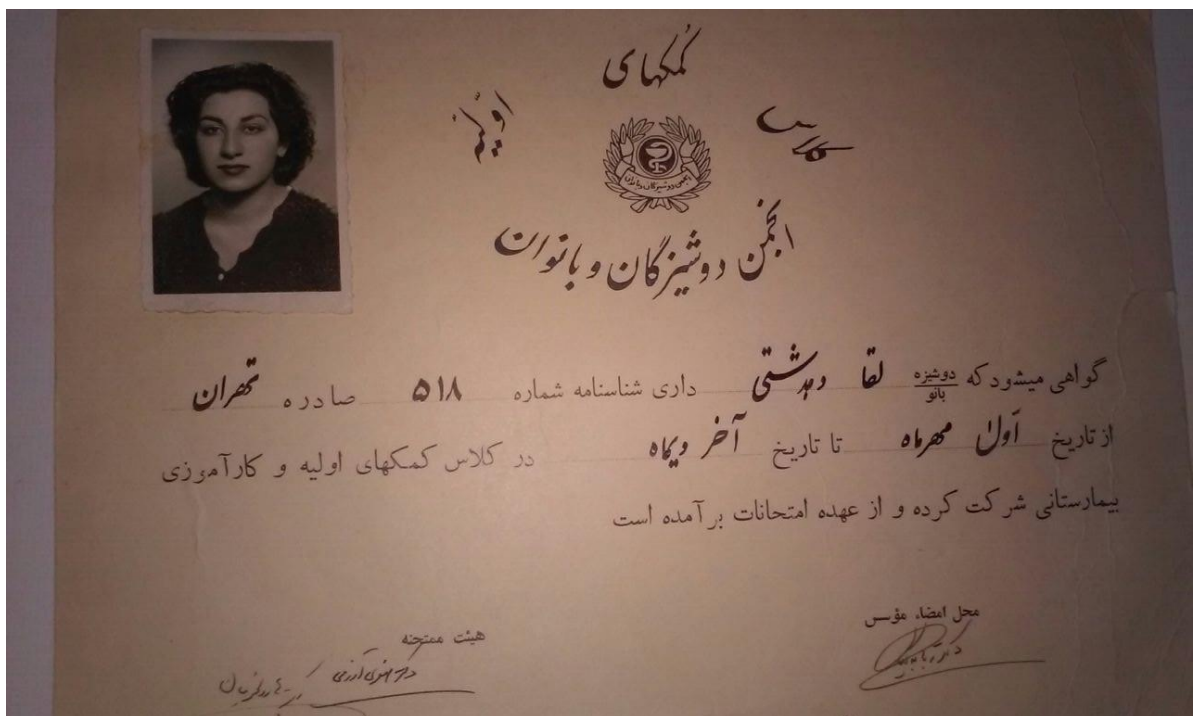 کلاس کمکهای اولیه
انجمن دوشیزگان و بانوان
انجمن دوشیزگان و بانوان
گواهی میشود که دوشیزه بانو لقا دهدشتی داری شناسنامه شماره ۵۱۸ صادره تهران
از تاریخ اول مهرماه تا تاریخ آخر دیماه در کلاس کمکهای اولیه و کارآموزی
بیمارستانی شرکت کرده و از عهده امتحانات برآمده است
محل امضاء مؤسس
هیئت ممتحنه